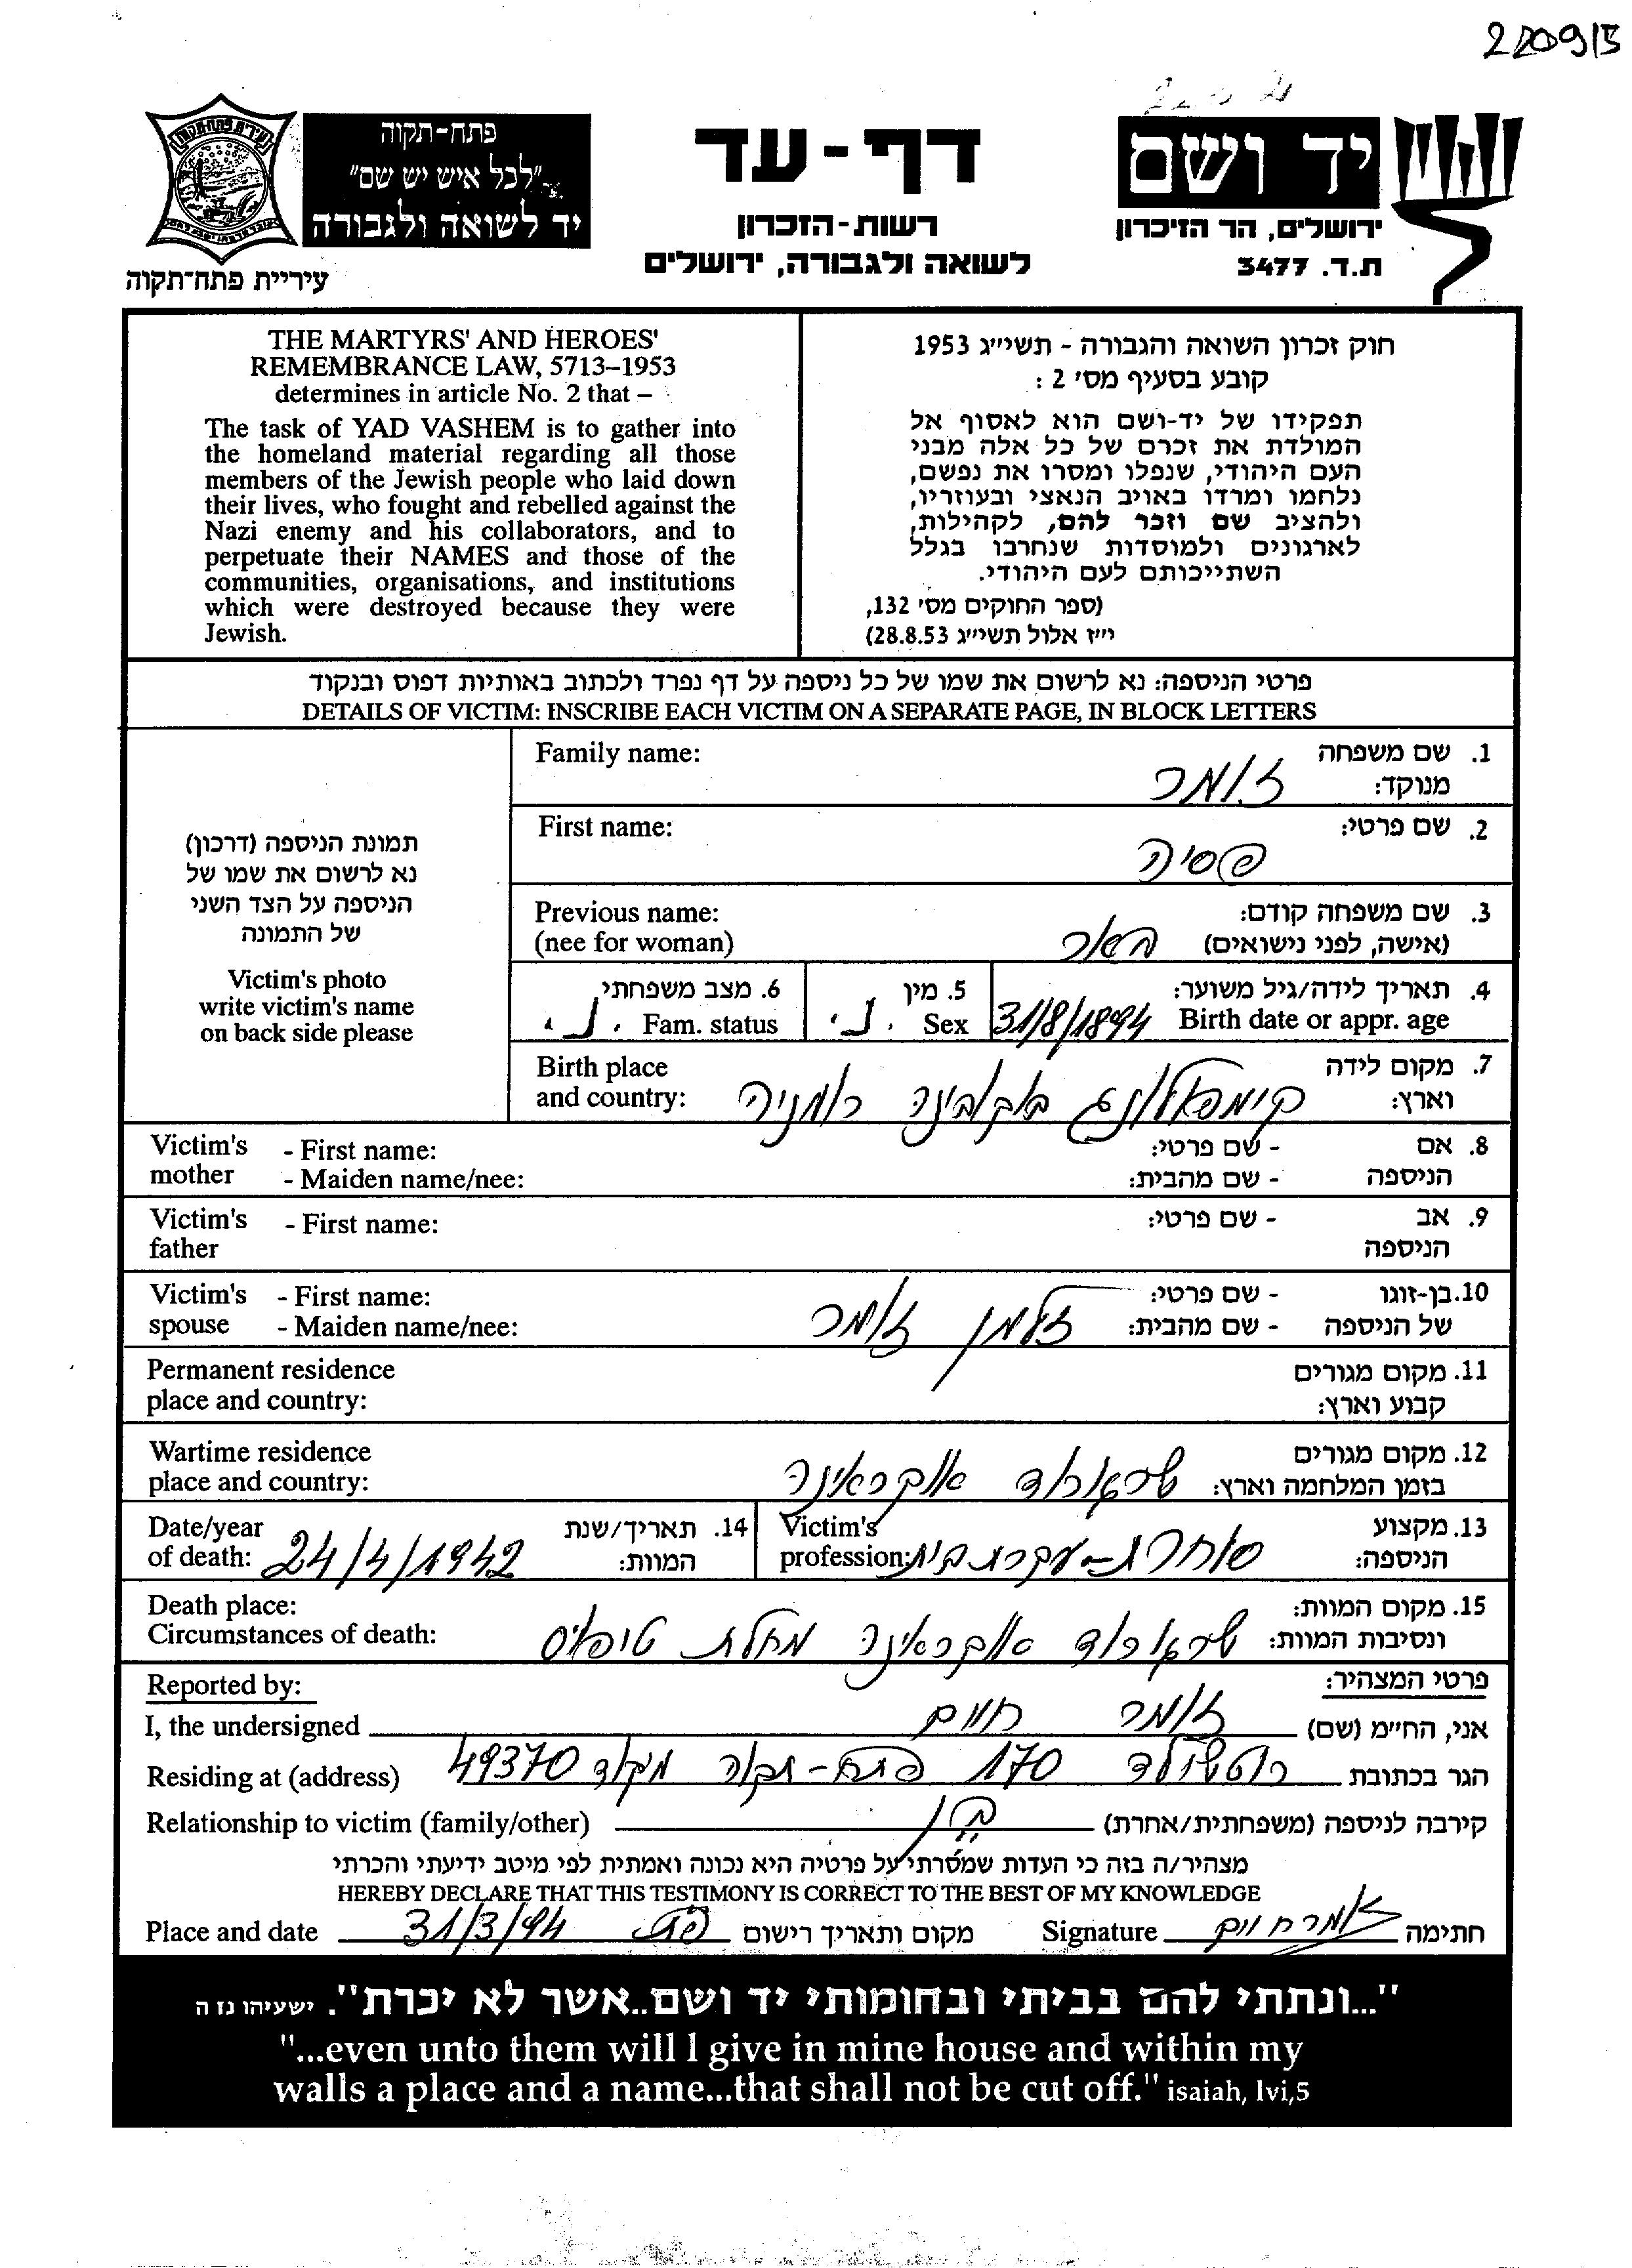 220915
פתח-תקוה
"לכל איש יש שם"
יד לשואה ולגבורה
עיריית פתח-תקוה
דף-עד
רשות-הזכרון
לשואה ולגבורה, ירושלים
יד ושם
ירושלים, הר הזיכרון
ת.ד. 3477
THE MARTYRS' AND HEROES'
REMEMBRANCE LAW, 5713–1953
determines in article No. 2 that –
The task of YAD VASHEM is to gather into
the homeland material regarding all those
members of the Jewish people who laid down
their lives, who fought and rebelled against the
Nazi enemy and his collaborators, and to
perpetuate their NAMES and those of the
communities, organisations, and institutions
which were destroyed because they were
Jewish.
חוק זכרון השואה והגבורה - תשי"ג 1953
קובע בסעיף מס' 2 :
תפקידו של יד-ושם הוא לאסוף אל
המולדת את זכרם של כל אלה מבני
העם היהודי, שנפלו ומסרו את נפשם,
נלחמו ומרדו באויב הנאצי ובעוזריו,
ולהציב שם וזכר להם, לקהילות,
לארגונים ולמוסדות שנחרבו בגלל
השתייכותם לעם היהודי.
(ספר החוקים מס' 132,
י"ז אלול תשי"ג 28.8.53)
פרטי הניספה: נא לרשום את שמו של כל ניספה על דף נפרד ולכתוב באותיות דפוס ובנקוד
DETAILS OF VICTIM: INSCRIBE EACH VICTIM ON A SEPARATE PAGE, IN BLOCK LETTERS
תמונת הניספה (דרכון)
נא לרשום את שמו של
הניספה על הצד השני
של התמונה
Victim's photo
write victim's name
on back side please
Family name: 1. שם משפחה
מנוקד: זומר
First name: 2. שם פרטי:
פסיה
Previous name: 3. שם משפחה קודם:
(nee for woman) (אישה, לפני נישואים)
4. תאריך לידה/גיל משוער: 5. מין 6. מצב משפחתי
Birth date or appr. age 31/8/1894 Sex נ. Fam. status נ.
Birth place 7. מקום לידה
and country: וארץ: קימפולונג בוקובינה רומניה
Victim's - First name: 8. אם - שם פרטי:
mother - Maiden name/nee: הניספה - שם מהבית:
Victim's - First name: 9. אב - שם פרטי:
father הניספה
Victim's - First name: 10. בן-זוגו - שם פרטי:
spouse - Maiden name/nee: של הניספה - שם מהבית: זלמן זומר
Permanent residence 11. מקום מגורים
place and country: קבוע וארץ:
Wartime residence 12. מקום מגורים
place and country: בזמן המלחמה וארץ: שרגורוד אוקראינה
13. מקצוע Victim's 14. תאריך/שנת Date/year
הניספה: סוחרת-עקרת בית profession: המוות: 24/4/1942 of death:
Death place: 15. מקום המוות:
Circumstances of death: ונסיבות המוות: שרגורוד אוקראינה מחלת טיפוס
Reported by: פרטי המצהיר:
I, the undersigned אני, החי"מ (שם) זומר חיים
Residing at (address) הגר בכתובת רוטשילד 170 פתח-תקוה מיקוד 49370
Relationship to victim (family/other) קירבה לניספה (משפחתית/אחרת) בן
מצהיר/ה בזה כי העדות שמסרתי על פרטיה היא נכונה ואמתית לפי מיטב ידיעתי והכרתי
HEREBY DECLARE THAT THIS TESTIMONY IS CORRECT TO THE BEST OF MY KNOWLEDGE
Place and date 31/3/94 פ"ת מקום ותאריך רישום Signature זומר חיים חתימה
"...ונתתי להם בביתי ובחומותי יד ושם..אשר לא יכרת". ישעיהו נז ה
"...even unto them will I give in mine house and within my
walls a place and a name...that shall not be cut off." isaiah, lvi,5